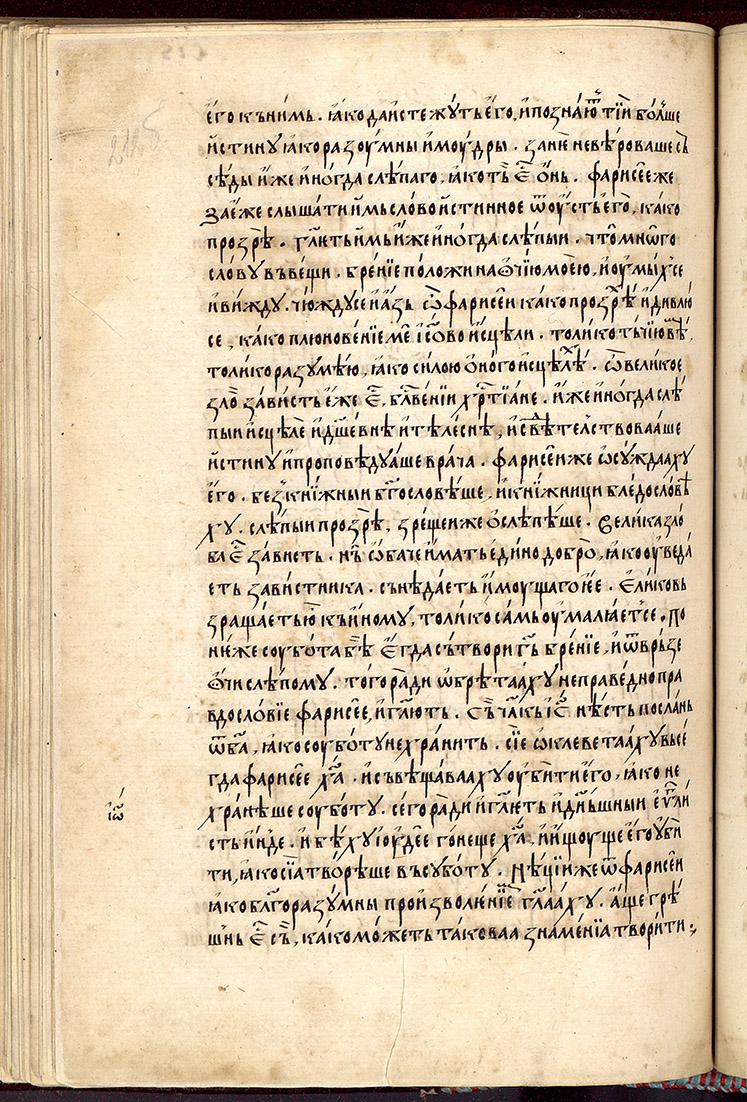 є҆го къни́мь . ꙗ҆ко да и҆стежѹ́ть є҆го , и҆ позна́ю҆ ѿ тїи҆ бо́лше
и҆стинꙋ ꙗ҆ко разоу́мны и҆ моу́дры . занїе невѣ́роваше съ
сѣ́ды и҆же и҆но́гда слѣ́паго , ꙗ҆ко тъ є҆с҃ о҆нь . фарисе́є же
за є҆́же слы́шати и҆мь сло́во и҆стинное ѿ оу҆́сть є҆го , ка́ко
прозрѣ̀ . гл҃ють и҆мь и҆́же и҆но́гда слѣ́пыи . что мно́го
сло́вꙋ въ ве́щи . бре́нїе положи на ѻ҆чїю мое́ю , и҆ оу҆мы́хсе
и҆ ви́ждꙋ . чю́ждꙋсе и҆ а҆́зь ѽ фарисе́и ка́ко прозрѣ́ и҆ ди́влю
се , ка́ко плюнове́нїе ме і҆с҃ово и҆сцѣли . толи́ко тъчїю вѣ̀ ,
толи́ко разꙋмѣю , ꙗ҆ко си́лою о҆́ного и҆сцѣлѣ́ . ѽ вели́кое
зло̀ за́висть є҆́же є҆с҃ , бл҃ве́нїи хр҃тїа́не . и҆́же и҆но́гда слѣ́
пыи и҆сцѣ́ле и҆ дш҃е́внѣ и҆ тѣле́снѣ , и҆ свѣ́телствоваа́ше
и҆стинꙋ и҆ проповѣ́дꙋаше вра́ча . фарисе́и же ѡ҆сꙋждаа́хꙋ
є҆го . без кни́жныи бг҃осло́вѣше , и҆ кни́жници бледосло́вѣ
хꙋ . слѣ́пыи прозрѣ̀ , зре́щеи же о҆слѣпѣ́ше . вели́ка зло́
ба є҆с҃ за́висть . нь ѡ҆ба́че и҆́мать є҆ди́но добро̀ , ꙗ҆ко оу҆веда́
еть зави́стника . сънѣда́еть и҆моу́щаго ю҆ . є҆ли́ко въ
зраща́еть ю къ и҆но́мꙋ , толи́ко са́мь оу҆малꙗ́етсе . по
не́же соубо́та бѣ̀ є҆гда̀ сътвори гь҃ бре́нїе , и҆ ѿвръ́зе
ѻ҆чи слѣ́помꙋ . того ра́ди ѡ҆брѣтаа́хꙋ непра́ведно пра
вдосло́вїе фарисе́є , и҆ гл҃ють . съ чл҃къ є҆с҃ нѣ́сть по́слань
ѿ ба҃ , ꙗ҆ко соубо́тꙋ не хра́нить . сїе ѡ҆клеветаа́хꙋ высе
гда фарисе́є ха҃ . и҆ съвѣщаваа́хꙋ оу҆би́ти є҆го , ꙗ҆ко не
хра́нѣше соубо́тꙋ . сего ра́ди и҆ гл҃еть и҆ дн҃ь́шныи є҆ѵⷢ҇ли
сть и҆́нде . и҆ бѣ́хꙋ і҆оудеє гоне́ще ха҃ , и҆ и҆щоу́ще є҆го оу҆би
ти , ꙗ҆ко сїа творѣ́ше въ сꙋбо́тꙋ . нѣ́цїи же ѿ фарисе́и
ꙗ҆ко благоразꙋ́мны произволе́нїе гл҃аахꙋ . а҆́ще грѣ́
шнь є҆с҃ съ , ка́ко мо́жеть такова́а зна́менїа твори́ти :,
і҆ѡ҃